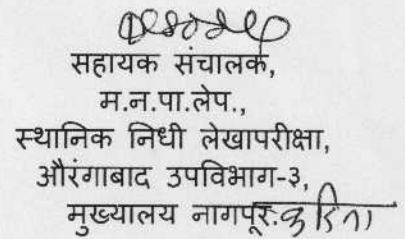 सहायक संचालक,
म.न.पा.लेप.,
स्थानिक निधी लेखापरीक्षा,
औरंगाबाद उपविभाग-३,
मुख्यालय नागपूर.करिता